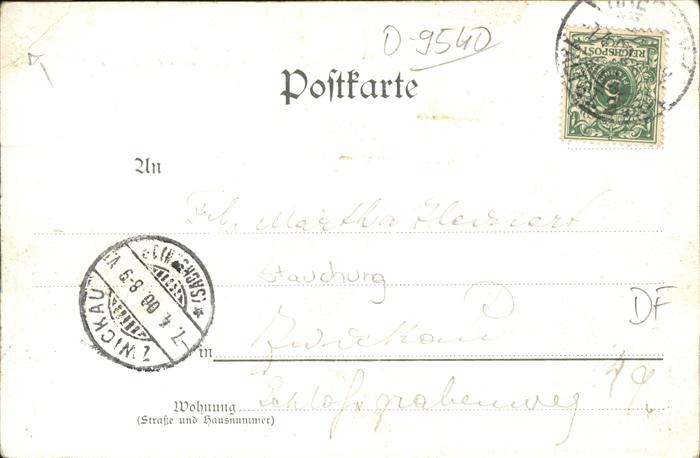 O-9540
REICHSPOST
5
Poſtkarte
An
Frl. Martha
Stauchung
DF
Zwickau
in
ZWICKAU
(SACHSEN)
7. 4. 00. 8-9
Wohnung
(Straße und Hausnummer)
Schloßgrabenweg